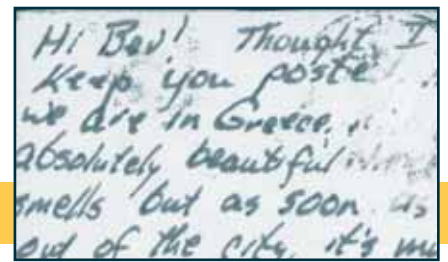 Hi Bev! Thought I
keep you poste
we are in Greece,
absolutely beautiful
smells but as soon as
out of the city, it's mu